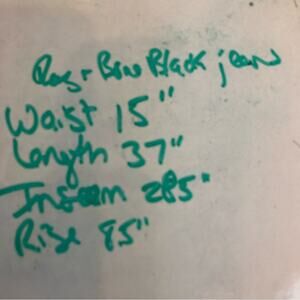 Rag + Bone Black jean
Waist 15"
Length 37"
Inseam 285"
Rise 85"